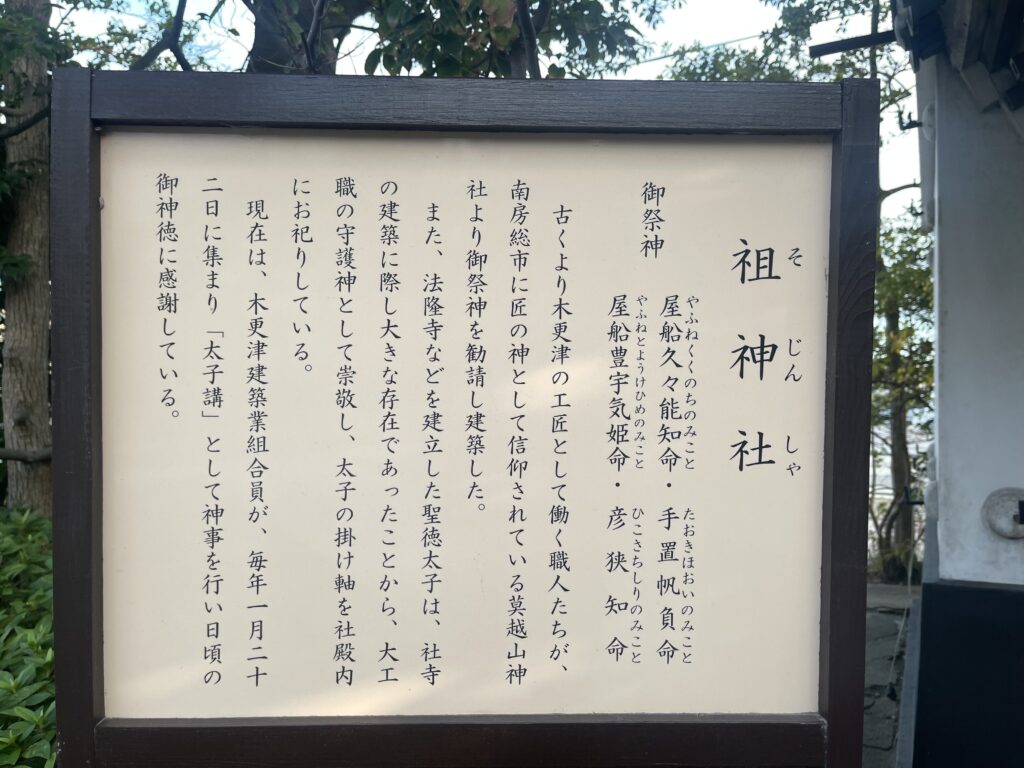 祖神社
そじんしゃ
御祭神
屋船久々能知命・手置帆負命
やふねくくのちのみこと たおきほおいのみこと
屋船豊宇気姫命・彦狭知命
やふねとようけひめのみこと ひこさちしりのみこと
古くより木更津の工匠として働く職人たちが、
南房総市に匠の神として信仰されている莫越山神
社より御祭神を勧請し建築した。
また、法隆寺などを建立した聖徳太子は、社寺
の建築に際し大きな存在であったことから、大工
職の守護神として崇敬し、太子の掛け軸を社殿内
にお祀りしている。
現在は、木更津建築業組合員が、毎年一月二十
二日に集まり「太子講」として神事を行い日頃の
御神徳に感謝している。